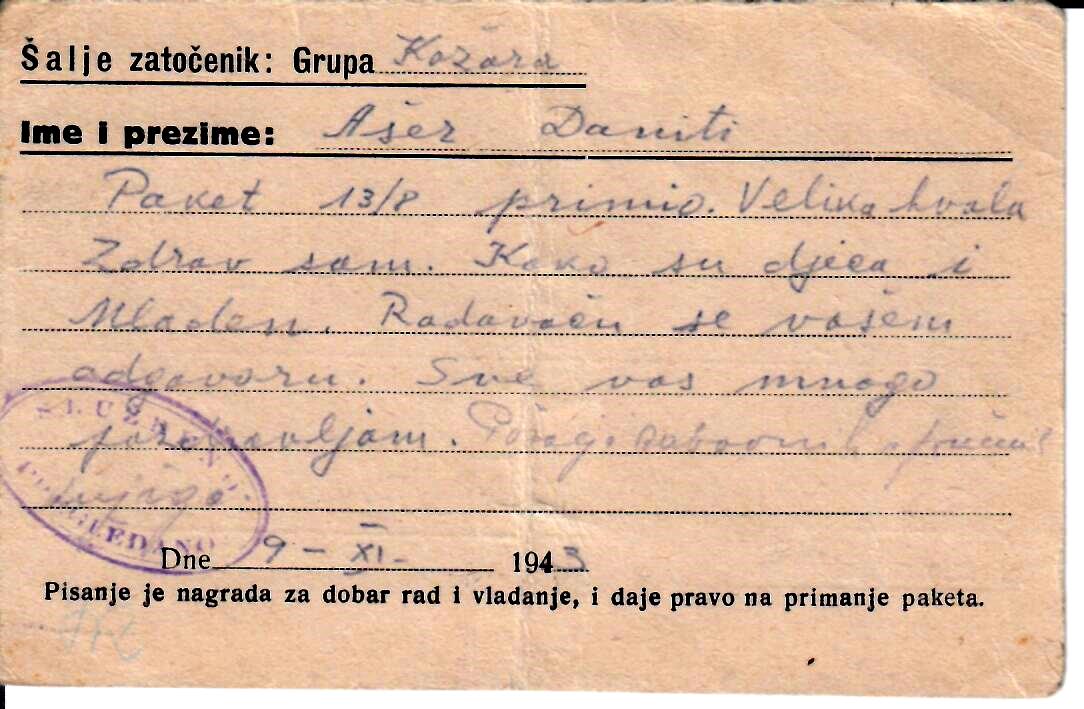 Šalje zatočenik: Grupa Kožara
Ime i prezime: Ašer Daniti
Paket 13/8 primio. Velika hvala
Zdrav sam. Kako su djeca i
Mladen. Radavaću se vašem
odgovoru. Sve vas mnogo
pozdravljam.
SLUŽBENO
PREGLEDANO
Dne 9 - XI - 1943
Pisanje je nagrada za dobar rad i vladanje, i daje pravo na primanje paketa.